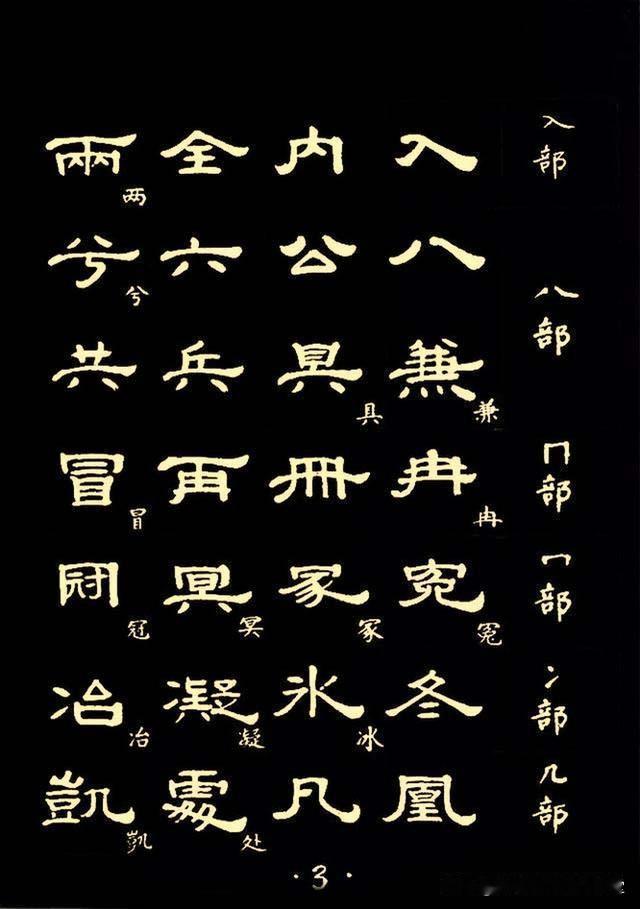 入部 入 内 全 兩 两
八部 八 公 六 兮 兮
兼 兼 具 具 兵 共
冂部 冉 冉 冊 再 冒 冒
冖部 冤 冤 冢 冢 冥 冥 冠 冠
冫部 冬 氷 冰 凝 凝 冶 冶
几部 凰 凡 處 处 凱 凱
·3·